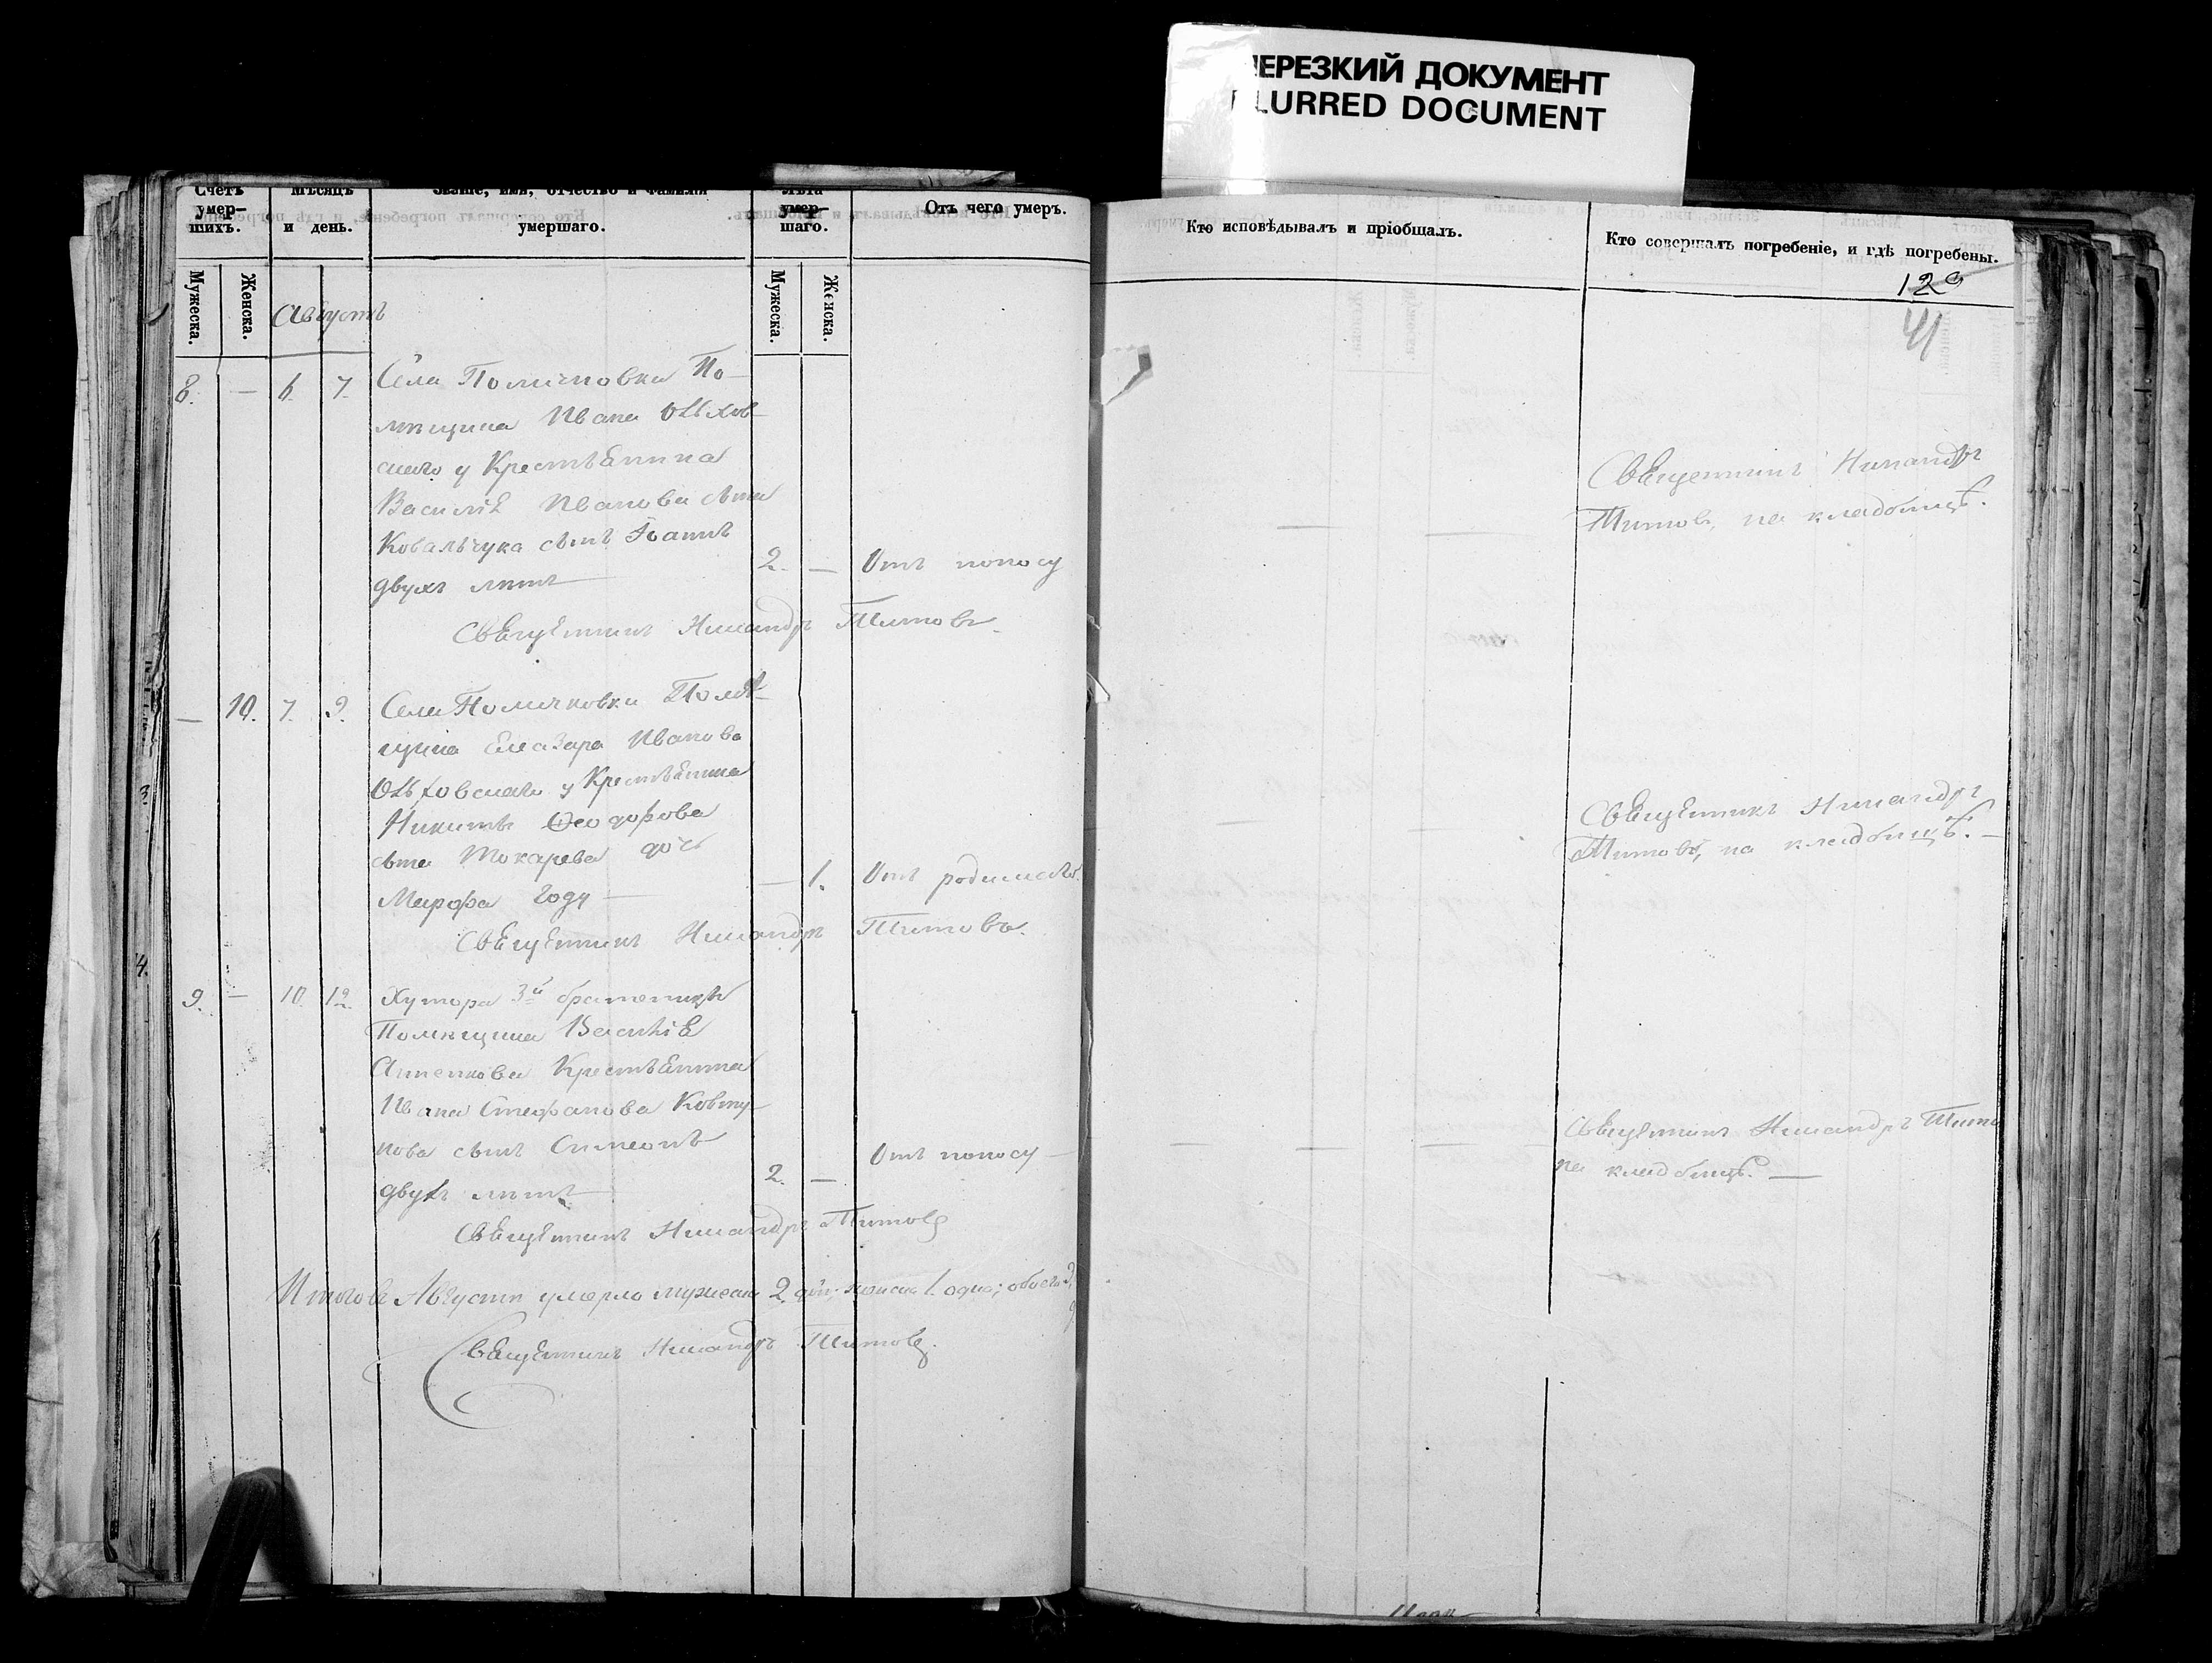 НЕРЕЗКИЙ ДОКУМЕНТ
BLURRED DOCUMENT
Счетъ умер-шихъ.
Мѣсяцъ и день.
Званіе, имя, отчество и фамилія умершаго.
Лѣта умер-шаго.
Отъ чего умеръ.
Мужеска.
Женска.
Мужеска.
Женска.
Августъ
8. — 6. 7. Села Помичновки По-
мѣщика Ивана Ольхов-
скаго у Крестьянина
Василія Иванова сына
Ковальчука сынъ Іоаннъ
двухъ лѣтъ — 2. — Отъ поносу
Священникъ Никандръ Титовъ.
— 10. 7. 9. Села Помичновки Помѣ-
щика Елеазара Иванова
Ольховскаго у Крестьянина
Никиты Ѳеодорова
сына Токарева дочь
Марфа году — — 1. Отъ родимаго.
Священникъ Никандръ Титовъ.
9. — 10. 12. Хутора 3й
Помѣщика Василія
Анненкова Крестьянина
Ивана Стефанова Ковту-
нова сынъ Симеонъ
двухъ лѣтъ — 2. — Отъ поносу —
Священникъ Никандръ Титовъ
Итого въ Августѣ умерло мужеска 2. два, женска 1. одна; обоего 3.
Священникъ Никандръ Титовъ.
Кто исповѣдывалъ и пріобщалъ.
Кто совершалъ погребеніе, и гдѣ погребены.
129
41
Священникъ Никандръ
Титовъ, на кладбищѣ.
Священникъ Никандръ
Титовъ, на кладбищѣ. —
Священникъ Никандръ Тито
на кладбищѣ. —